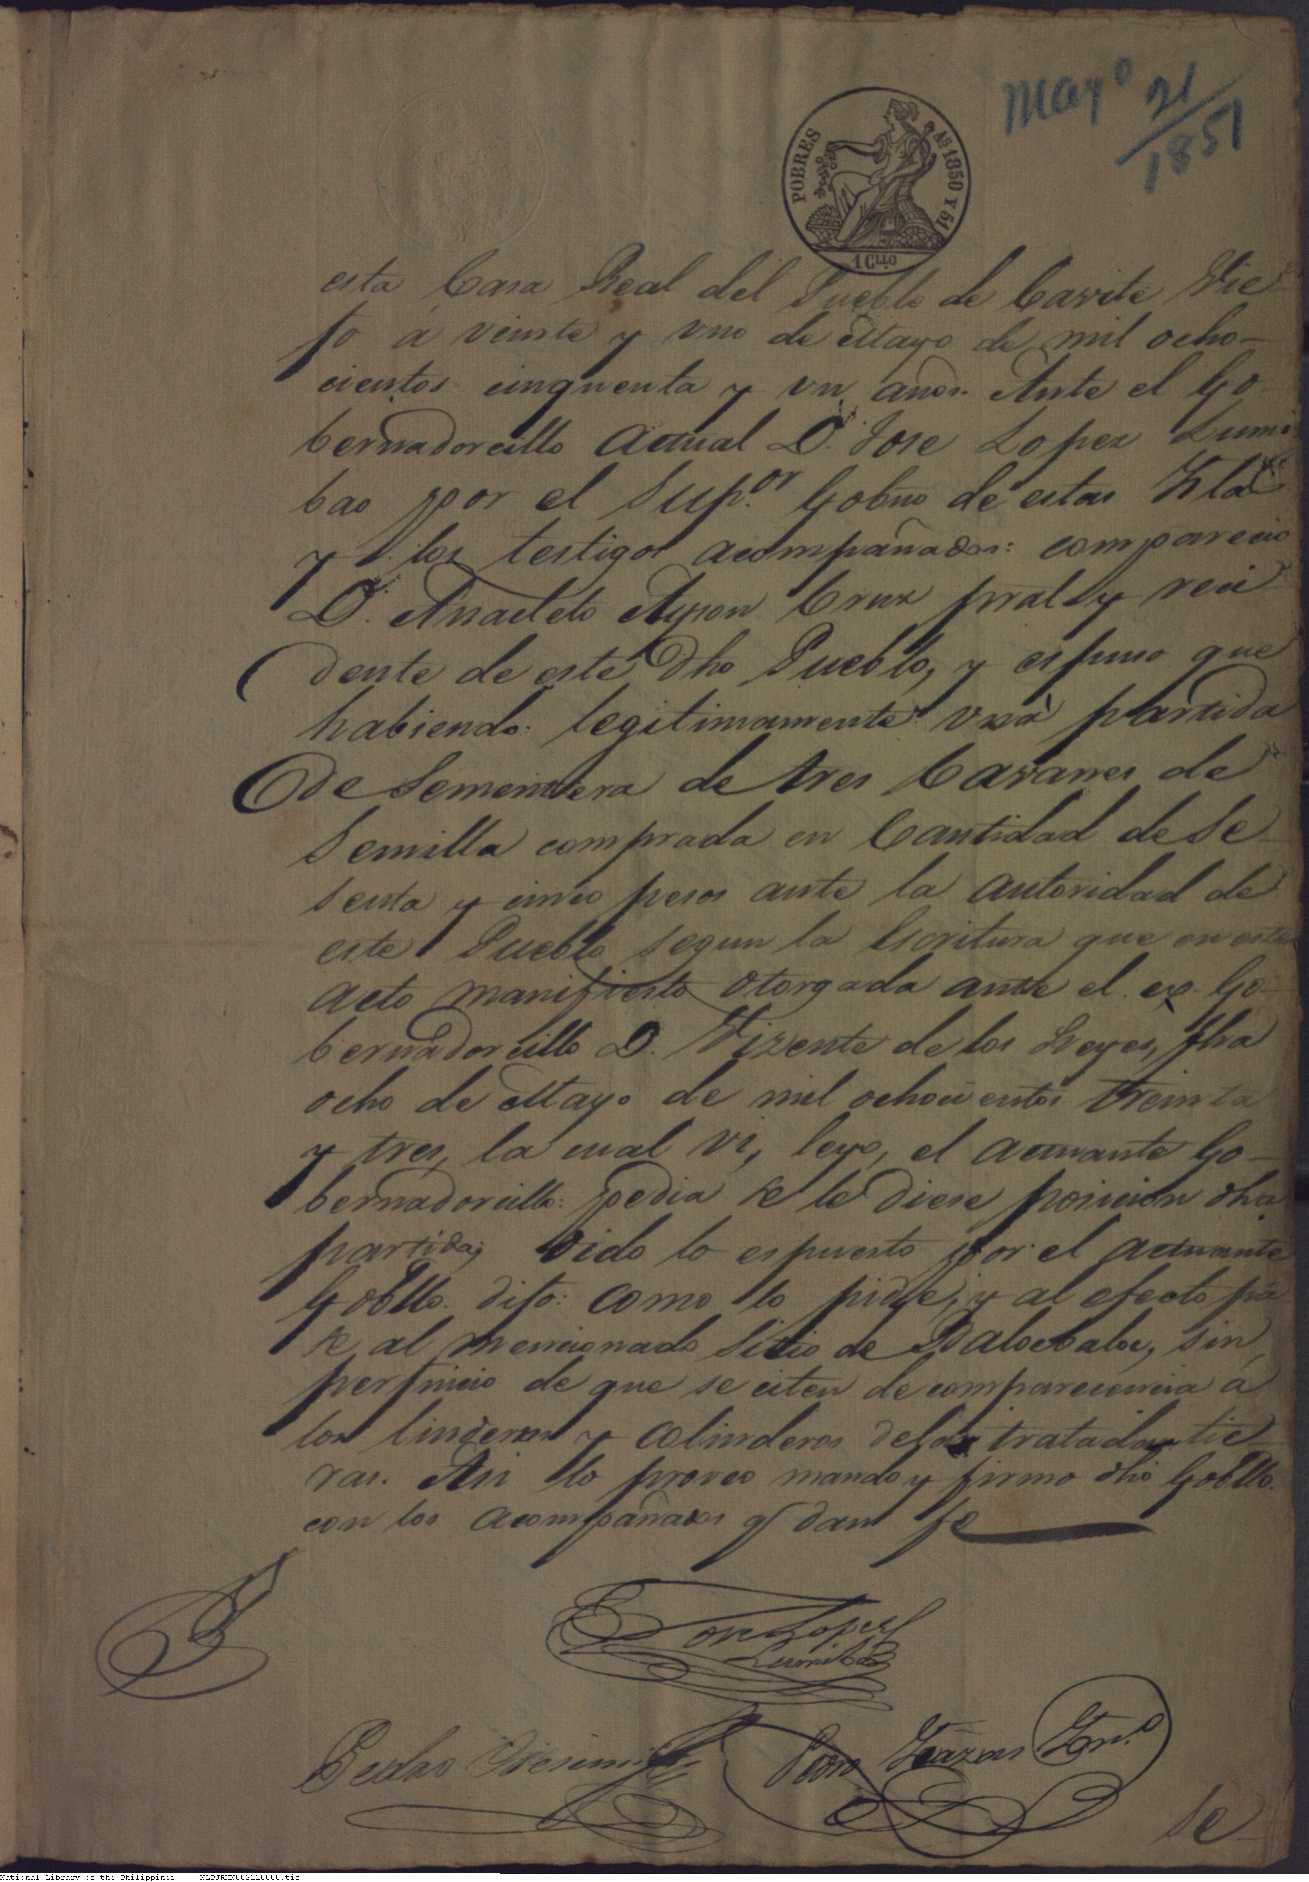 Mayo 21/1851
POBRES
AS 1850 Y 51
1 Cllo
esta Casa Real del Pueblo de Cavite Vie
jo á veinte y uno de Mayo de mil ocho-
cientos cinquenta y un años. Ante el Go-
bernadorcillo actual D. Jose Lopez Lumi
bao por el Sup.or Gobno de estas Ylas
y los testigos acompañados: comparecio
D. Anacleto Ayson Cruz pral y reci
dente de este dho Pueblo, y espuso que
habiendo legitimamente una partida
de Sementera de tres Cavanes de
Semilla comprada en Cantidad de Se-
senta y cinco pesos ante la autoridad de
este Pueblo segun la Escritura que en este
acto manifiesta otorgada ante el ex Go-
bernadorcillo D. Vizente de los Reyes, fha
ocho de Mayo de mil ochocientos treinta
y tres, la cual vi, leyo, el actuante Go-
bernadorcillo: pedia se le diese posicion dha
partida; oido lo espuesto por el actuante
Gobllo. dijo: como lo pide, y al efecto pa
se al mencionado Sitio de Balocbaloc, sin
perjuicio de que se citen de comparecencia á
los linderos y colinderos delas tratadas tie
rras. Asi lo proveo mando y firmo dho Gobllo.
con los acompañados q dan fe
Jose Lopez
Lumibao
Pedro
Se-
National Library of the Philippines